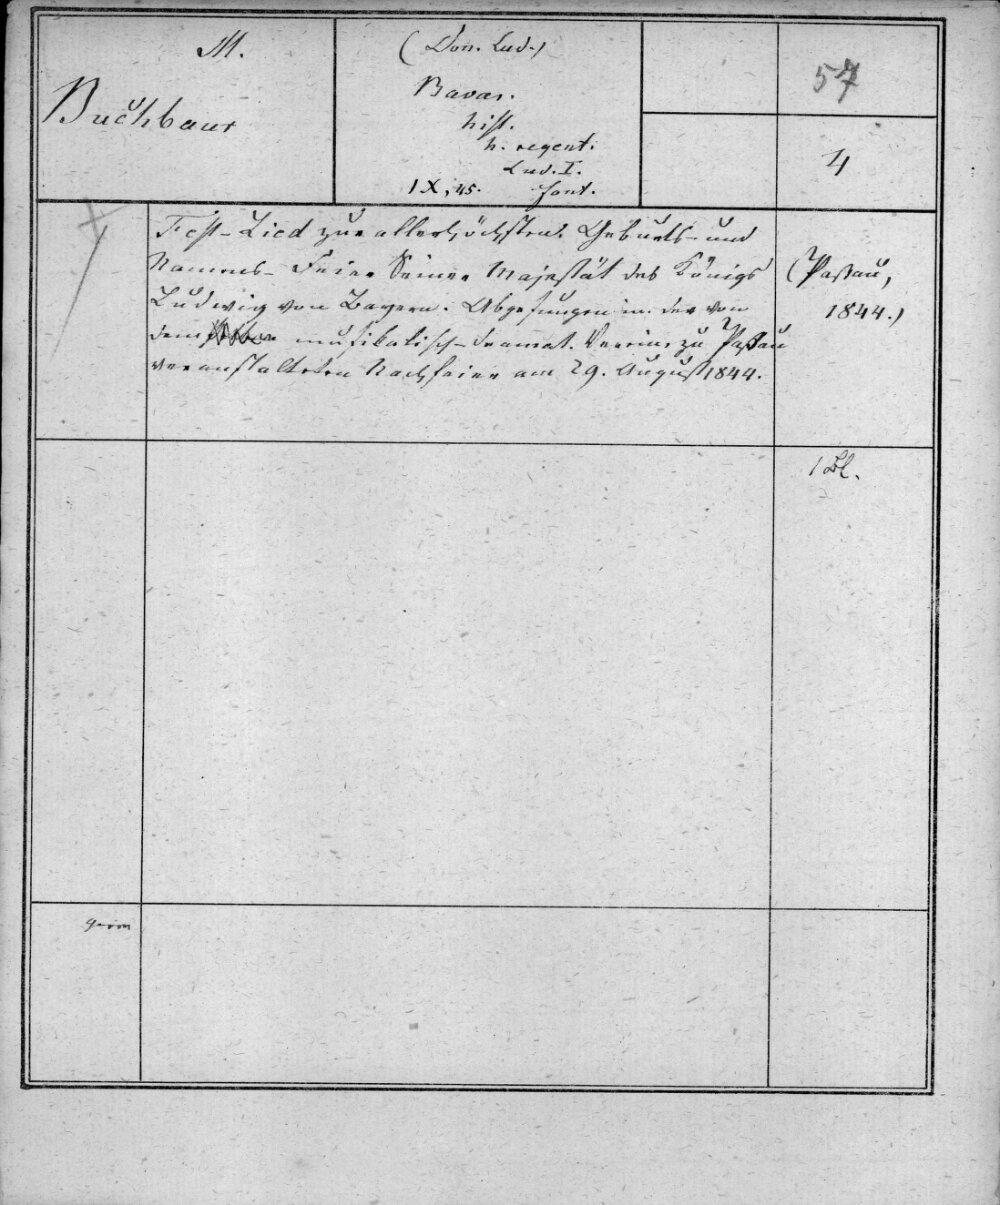 M.
Buchbaur
(Don. Lud.)
Bavar.
hist.
h. regent.
Lud. I.
IX, 45. font.
57
4
Fest-Lied zur allerhöchsten Geburts- und
Namens-Feier Seiner Majestät des Königs
Ludwig von Bayern. Abgesungen in der von
dem musikalisch-dramat. Verein zu Paßau
veranstalteten Nachfeier am 29. August 1844.
(Paßau,
1844.)
1 Bl.